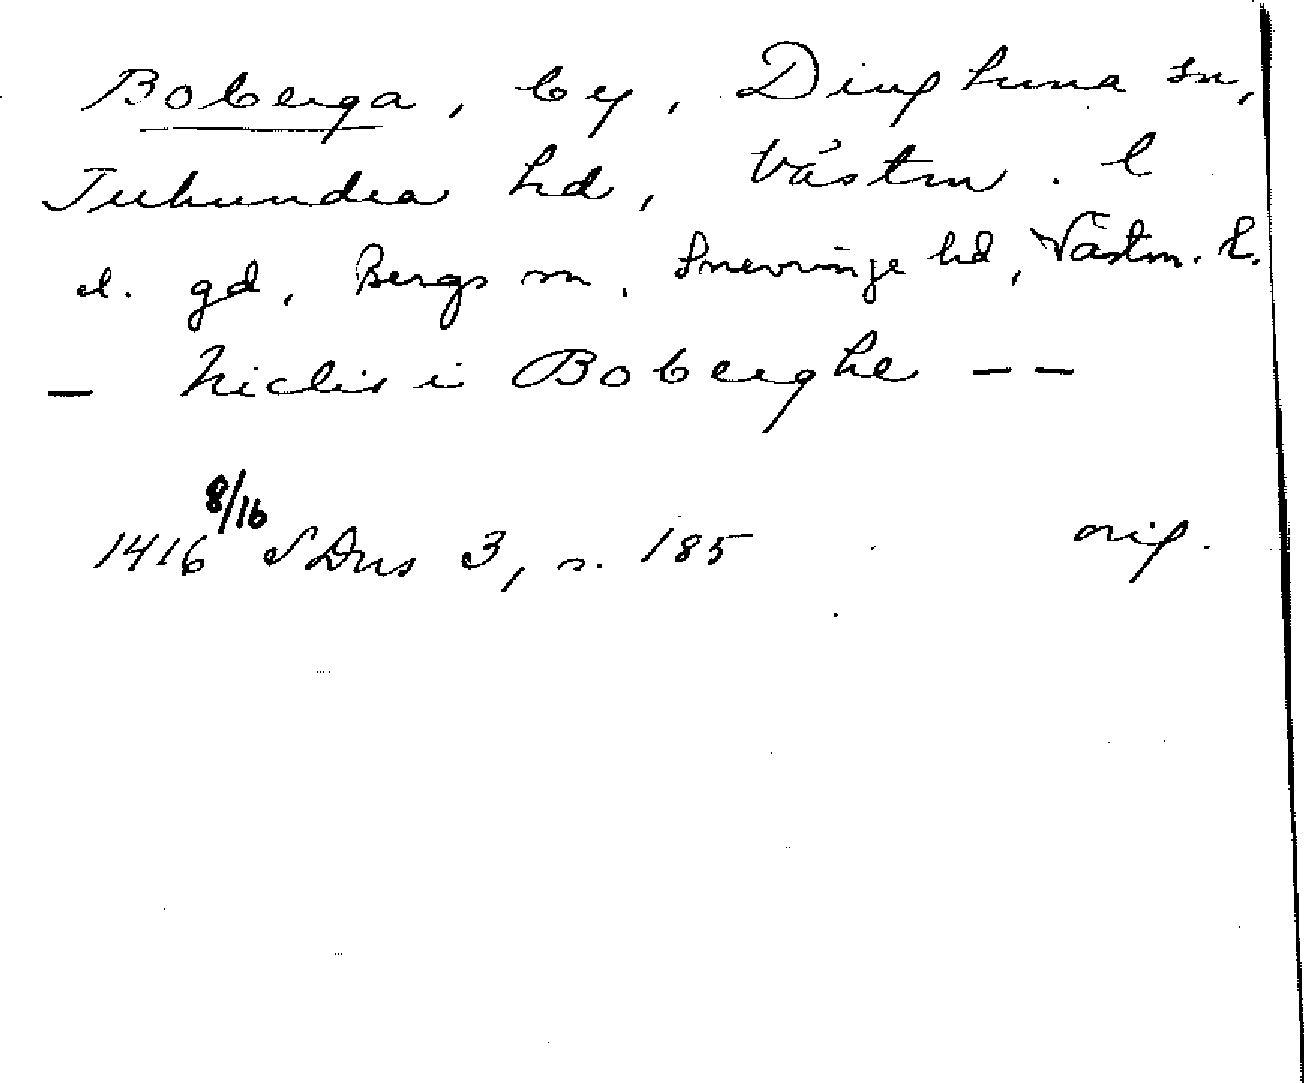 Boberga, by, Dingtuna sn,
Tuhundra hd, Västm. l
el. gd, Bergs sn, Snevringe hd, Västm. l.
— Niclis i Boberghe — —
1416 8/16 SDns 3, s. 185 orig.